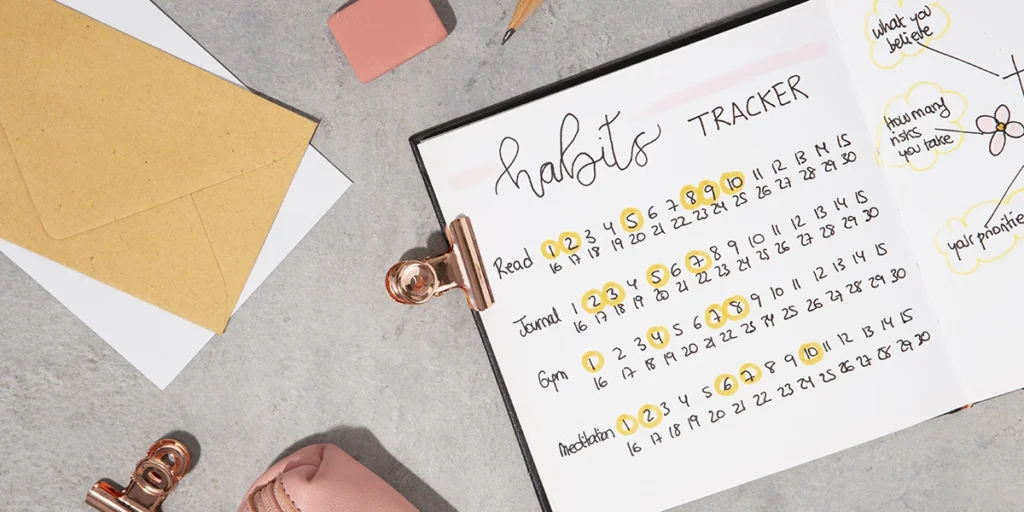 habits TRACKER
Read 1 2 3 4 5 6 7 8 9 10 11 12 13 14 15
16 17 18 19 20 21 22 23 24 25 26 27 28 29 30
Journal 1 2 3 4 5 6 7 8 9 10 11 12 13 14 15
16 17 18 19 20 21 22 23 24 25 26 27 28 29 30
Gym 1 2 3 4 5 6 7 8 9 10 11 12 13 14 15
16 17 18 19 20 21 22 23 24 25 26 27 28 29 30
Meditation 1 2 3 4 5 6 7 8 9 10 11 12 13 14 15
16 17 18 19 20 21 22 23 24 25 26 27 28 29 30
what you
believe
How many
risks
you take
your prioritie